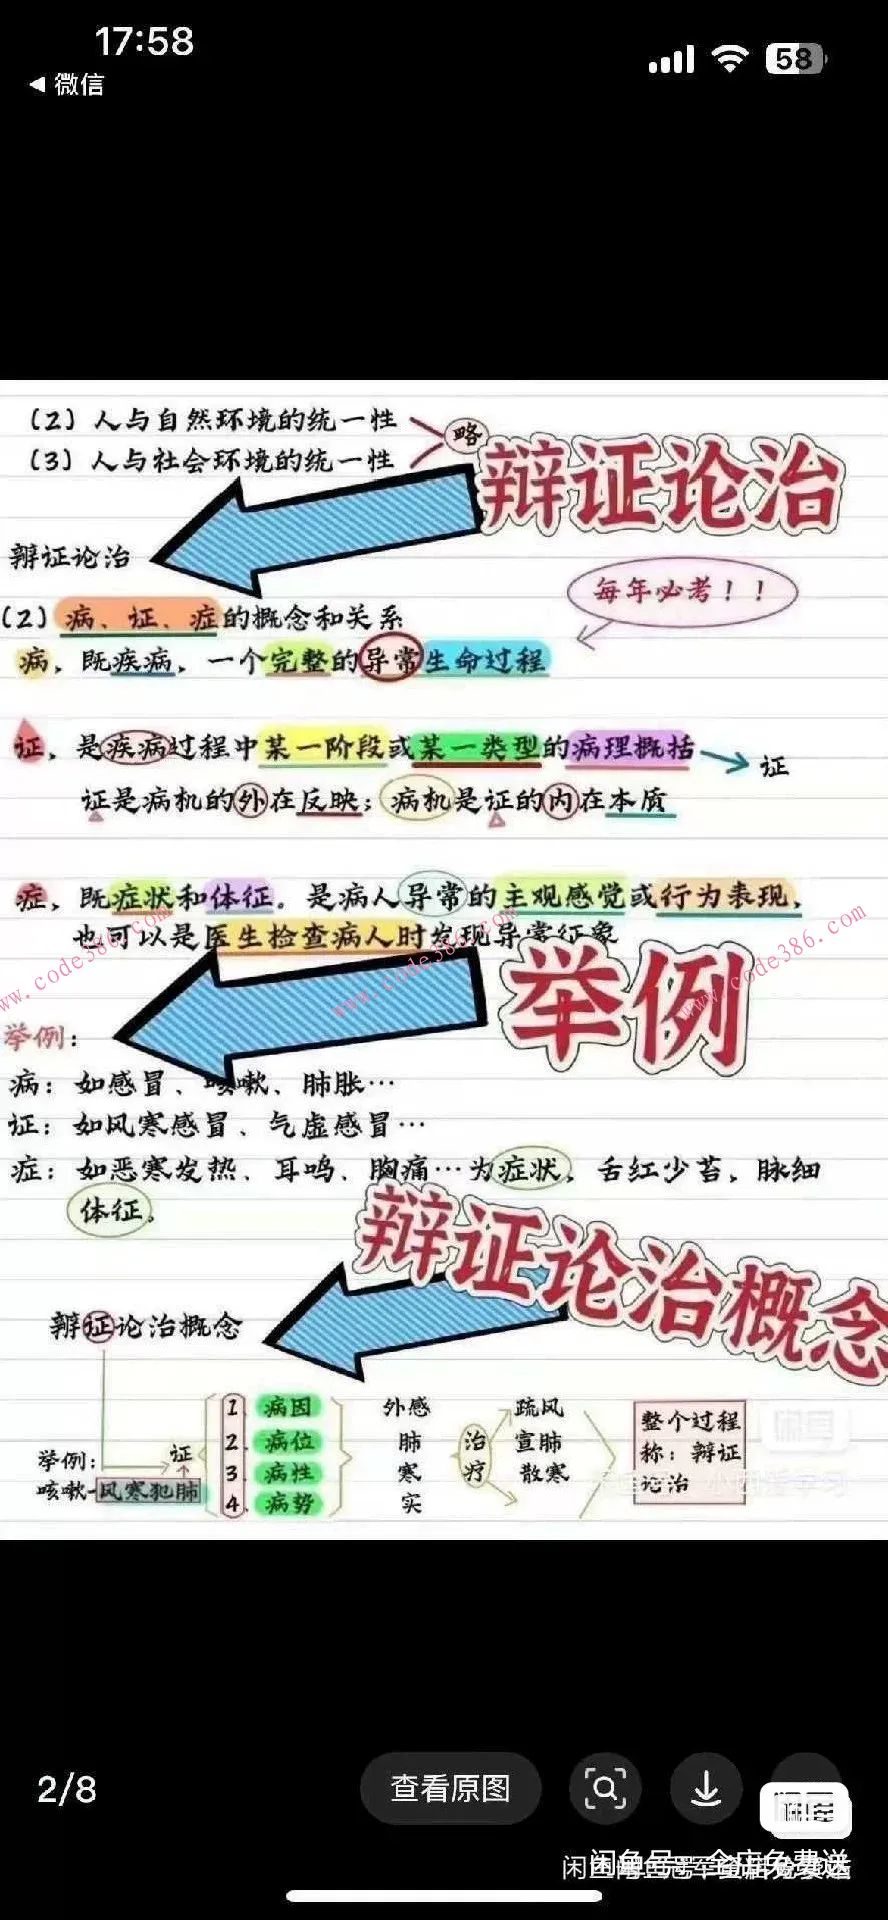 17:58
58
◀ 微信
(2) 人与自然环境的统一性
(3) 人与社会环境的统一性
略
辩证论治
辩证论治
每年必考！！
(2) 病、证、症的概念和关系
病，既疾病，一个完整的异常生命过程
证，是疾病过程中某一阶段或某一类型的病理概括
证
证是病机的外在反映；病机是证的内在本质
症，既症状和体征。是病人异常的主观感觉或行为表现，
也可以是医生检查病人时发现异常征象
www.code386.com
www.code386.com
www.code386.com
举例
举例：
病：如感冒、咳嗽、肺胀…
证：如风寒感冒、气虚感冒…
症：如恶寒发热、耳鸣、胸痛…为症状，舌红少苔，脉细
体征。
辩证论治概念
辩证论治概念
举例：
咳嗽-风寒犯肺
证
1. 病因
2. 病位
3. 病性
4. 病势
外感
肺
寒
实
治疗
疏风
宣肺
散寒
整个过程
称：辩证
论治
闲鱼
小西爱学习
2/8
查看原图
闲鱼